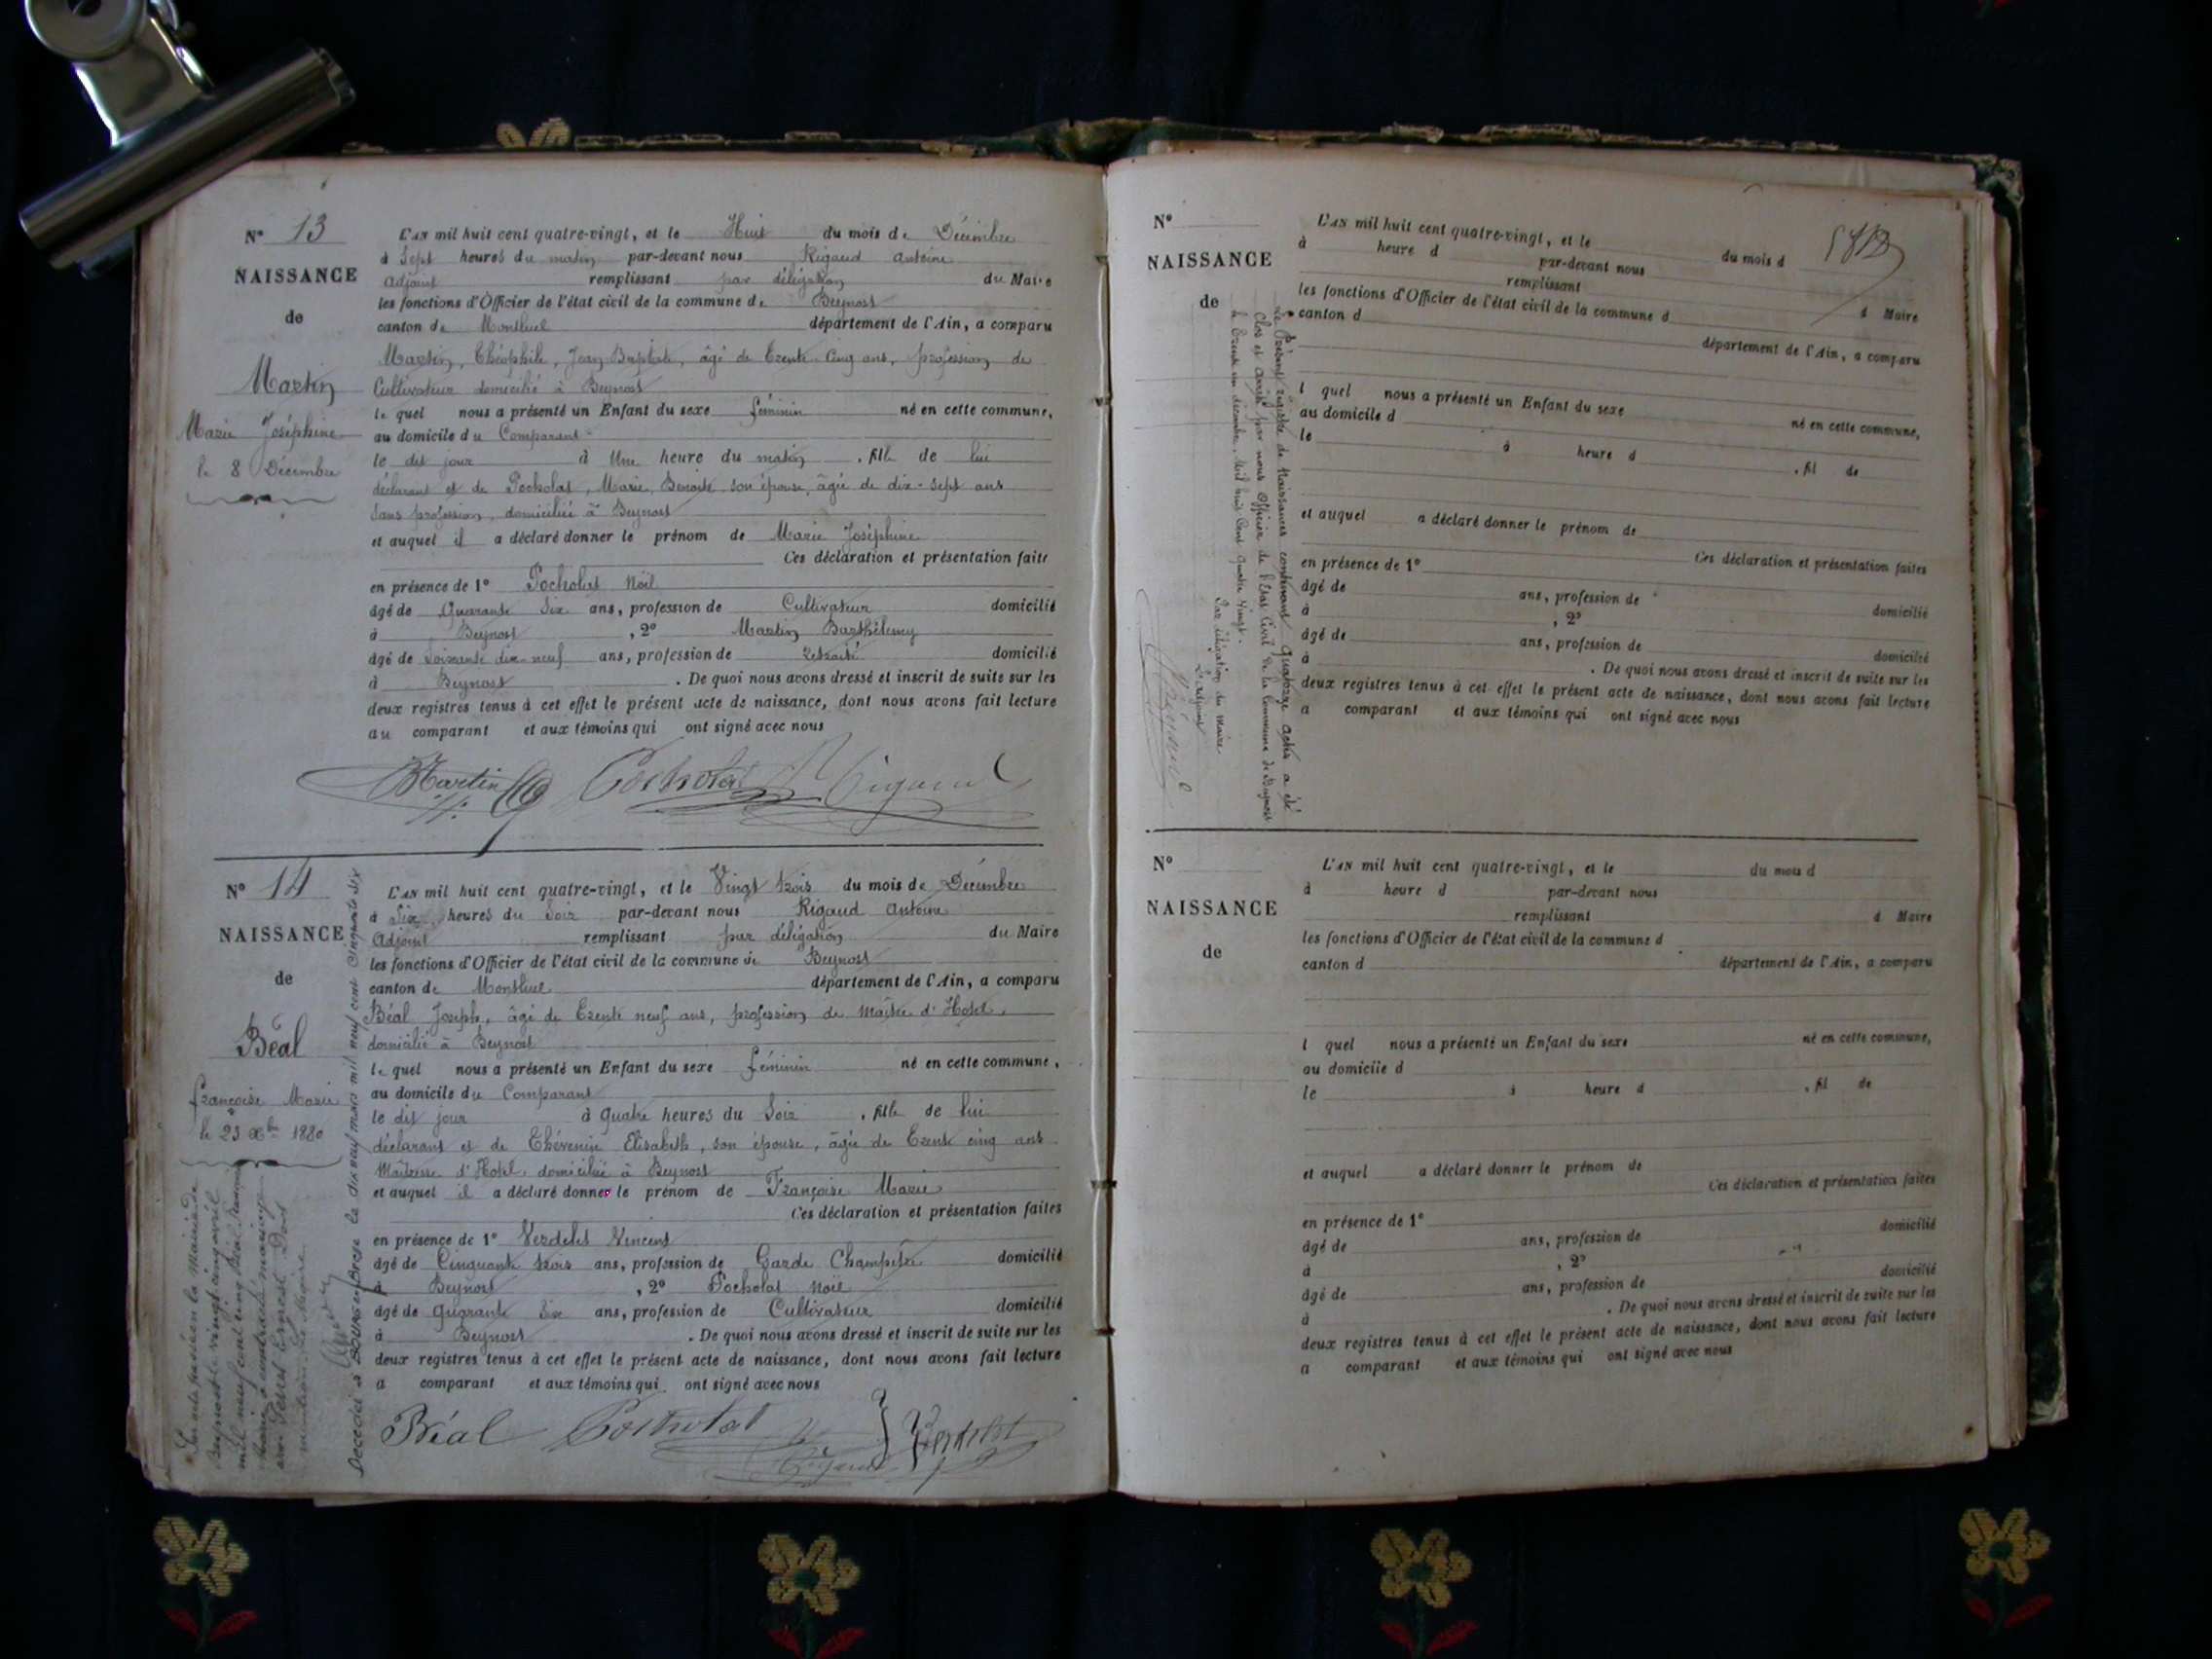 N° 13
NAISSANCE
de
Martin
Marie Joséphine
le 8 Décembre
L'AN mil huit cent quatre-vingt, et le Huit du mois de Décembre
à Sept heures du matin par-devant nous Rigaud Antoine
Adjoint remplissant par délégation du Maire
les fonctions d'Officier de l'état civil de la commune de Beynost
canton de Montluel département de l'Ain, a comparu
Martin, Théophile, Jean Baptiste, âgé de Trente Cinq ans, profession de
Cultivateur domicilié à Beynost
le quel nous a présenté un Enfant du sexe féminin né en cette commune,
au domicile du Comparant
le dit jour à Une heure du matin, fille de lui
déclarant et de Pocholat, Marie, Benoite son épouse, âgée de dix-sept ans
Sans profession, domiciliée à Beynost
et auquel il a déclaré donner le prénom de Marie Joséphine
Ces déclaration et présentation faites
en présence de 1° Pocholat Noël
âgé de Quarante Six ans, profession de Cultivateur domicilié
à Beynost, 2° Martin Barthélemy
âgé de Soixante dix-neuf ans, profession de retraité domicilié
à Beynost. De quoi nous avons dressé et inscrit de suite sur les
deux registres tenus à cet effet le présent acte de naissance, dont nous avons fait lecture
au comparant et aux témoins qui ont signé avec nous
Martin Pocholat Rigaud
N° 14
NAISSANCE
de
Béal
Françoise Marie
le 23 Xbre 1880
L'AN mil huit cent quatre-vingt, et le Vingt trois du mois de Décembre
à Six heures du Soir par-devant nous Rigaud Antoine
Adjoint remplissant par délégation du Maire
les fonctions d'Officier de l'état civil de la commune de Beynost
canton de Montluel département de l'Ain, a comparu
Béal Joseph, âgé de Trente neuf ans, profession de Maître d'Hotel,
domicilié à Beynost
le quel nous a présenté un Enfant du sexe féminin né en cette commune,
au domicile du Comparant
le dit jour à Quatre heures du Soir, fille de lui
déclarant et de Thévenin Elisabeth, son épouse, âgée de Trente cinq ans
Maitresse d'Hotel, domiciliée à Beynost
et auquel il a déclaré donner le prénom de Françoise Marie
Ces déclaration et présentation faites
en présence de 1° Verdelet Vincent
âgé de Cinquante trois ans, profession de Garde Champêtre domicilié
à Beynost, 2° Pocholat Noël
âgé de Quarante Six ans, profession de Cultivateur domicilié
à Beynost. De quoi nous avons dressé et inscrit de suite sur les
deux registres tenus à cet effet le présent acte de naissance, dont nous avons fait lecture
a comparant et aux témoins qui ont signé avec nous
Béal Pocholat Rigaud Verdelet
Par acte passé en la Mairie de
Beynost le vingt cinq avril
mil neuf cent cinq Béal Françoise
Marie a contracté mariage
avec Ernest
mention. Le Maire
Décédée à BOURG en Bresse le dix neuf mars mil neuf cent cinquante six
N°
NAISSANCE
de
L'AN mil huit cent quatre-vingt, et le du mois d
à heure d par-devant nous
remplissant d Maire
les fonctions d'Officier de l'état civil de la commune d
canton d département de l'Ain, a comparu
l quel nous a présenté un Enfant du sexe né en cette commune,
au domicile d
le à heure d, fil de
et auquel a déclaré donner le prénom de
Ces déclaration et présentation faites
en présence de 1°
âgé de ans, profession de domicilié
à, 2°
âgé de ans, profession de domicilié
à. De quoi nous avons dressé et inscrit de suite sur les
deux registres tenus à cet effet le présent acte de naissance, dont nous avons fait lecture
a comparant et aux témoins qui ont signé avec nous
Le Présent registre de Naissances contenant quatorze actes a été
Clos et arrêté par nous Officier de l'Etat Civil de la Commune de Beynost
le Trente un décembre, Mil huit Cent quatre Vingt.
Par délégation du Maire
L'adjoint
Rigaud
N°
NAISSANCE
de
L'AN mil huit cent quatre-vingt, et le du mois d
à heure d par-devant nous
remplissant d Maire
les fonctions d'Officier de l'état civil de la commune d
canton d département de l'Ain, a comparu
l quel nous a présenté un Enfant du sexe né en cette commune,
au domicile d
le à heure d, fil de
et auquel a déclaré donner le prénom de
Ces déclaration et présentation faites
en présence de 1°
âgé de ans, profession de domicilié
à, 2°
âgé de ans, profession de domicilié
à. De quoi nous avons dressé et inscrit de suite sur les
deux registres tenus à cet effet le présent acte de naissance, dont nous avons fait lecture
a comparant et aux témoins qui ont signé avec nous